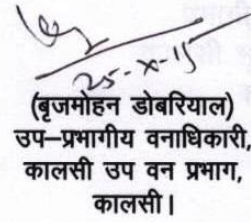 25-X-15
(बृजमोहन डोबरियाल)
उप–प्रभागीय वनाधिकारी,
कालसी उप वन प्रभाग,
कालसी।